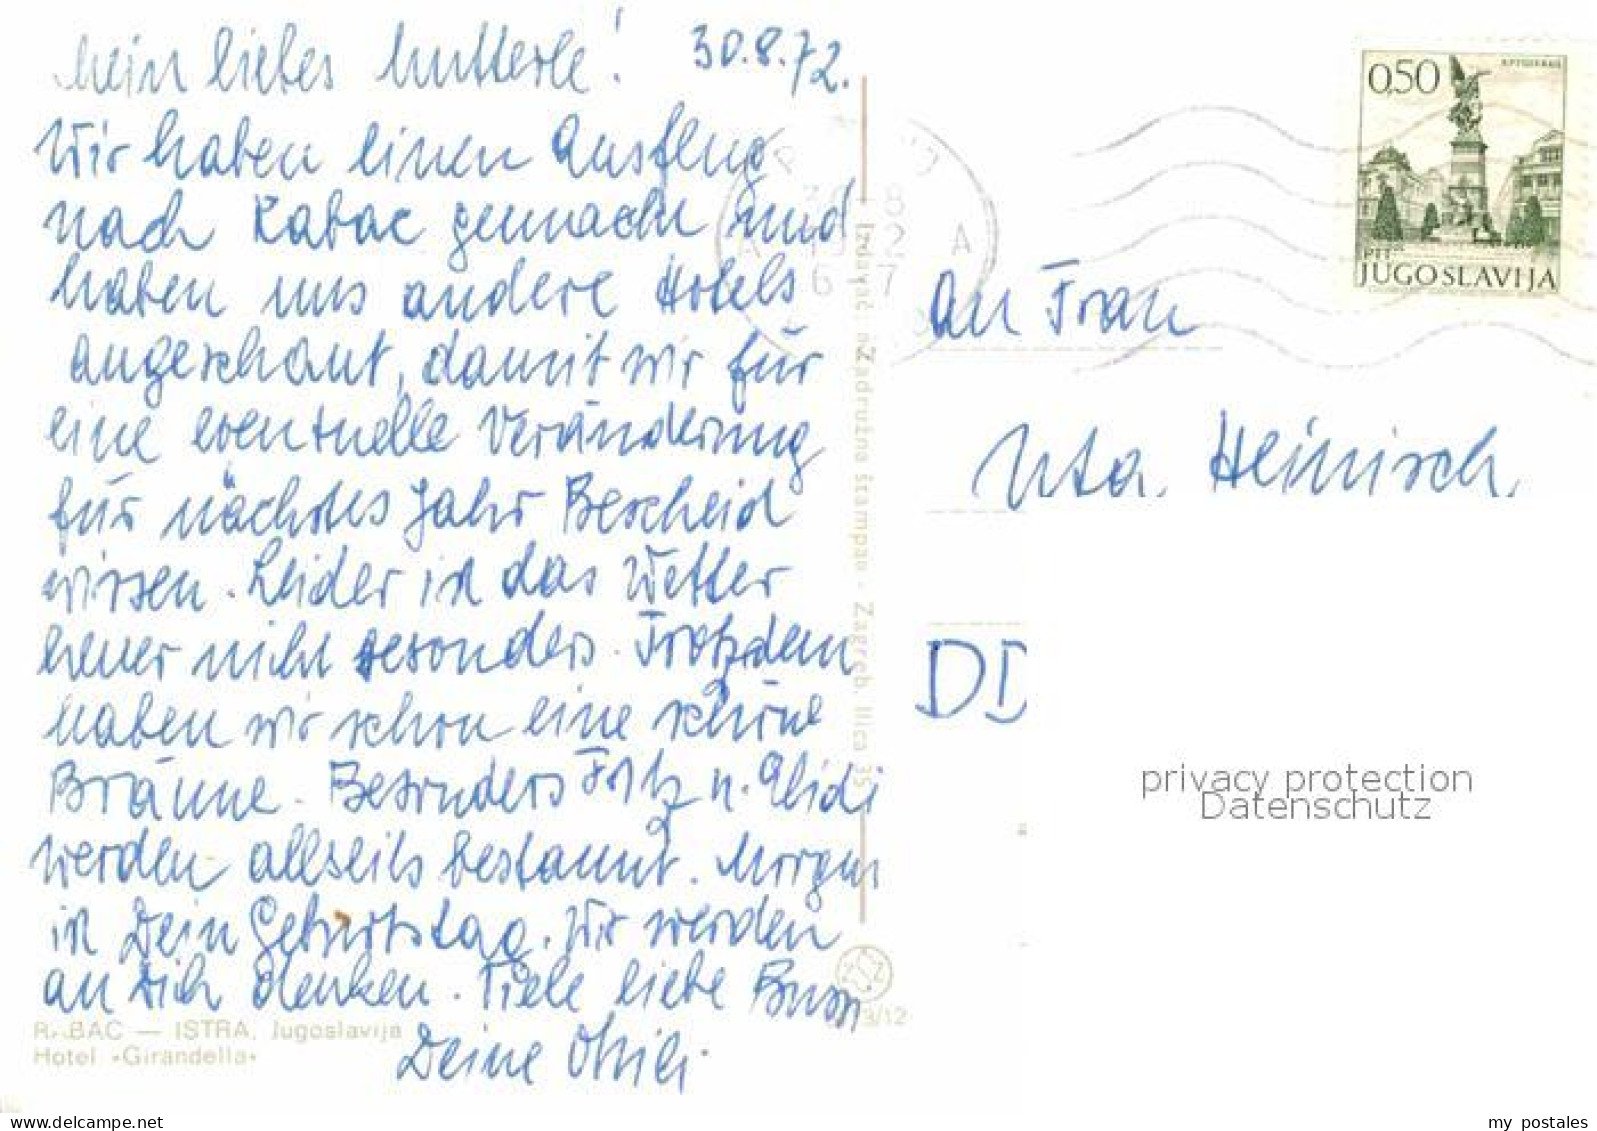 Mein liebes Mutterle! 30.8.72.
Wir haben einen Ausflug
nach Rabac gemacht und
haben uns andere Hotels
angeschaut, damit wir für
eine eventuelle Veränderung
für nächstes Jahr Bescheid
wissen. Leider ist das Wetter
heuer nicht besonders. Trotzdem
haben wir schon eine schöne
Bräune. Besonders Fritz u.
werden allseits bestaunt. Morgen
ist Dein Geburtstag. Wir werden
an Dich denken. Viele liebe Bussi
Deine
RABAC — ISTRA, Jugoslavija
Hotel »Girandella«
Izdavač: »Zadružna štampa« - Zagreb, Ilica 35
3/12
0,50
PTT
JUGOSLAVIJA
An Frau
Uta. Heinisch.
DD
privacy protection
Datenschutz
my postales